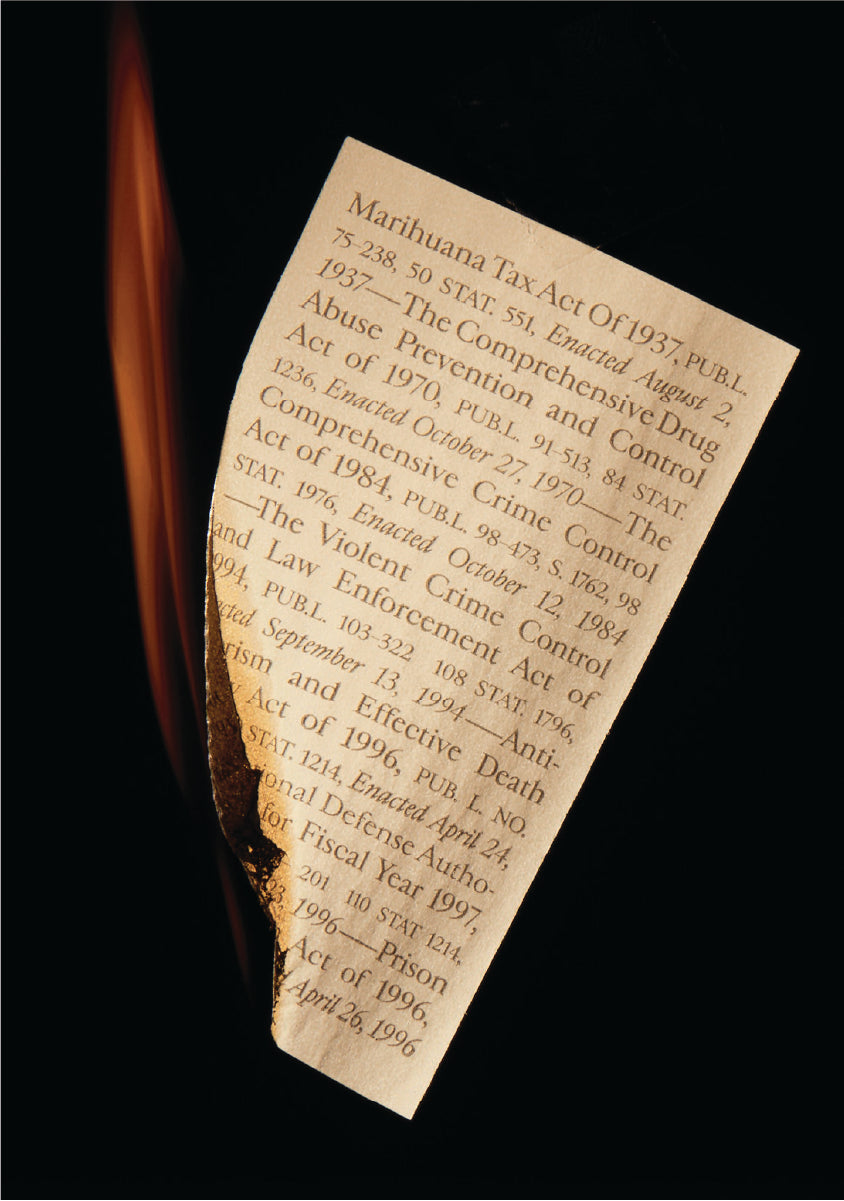 Marihuana Tax Act Of 1937, PUB.L.
75-238, 50 STAT. 551, Enacted August 2,
1937—The Comprehensive Drug
Abuse Prevention and Control
Act of 1970, PUB.L. 91-513, 84 STAT.
1236, Enacted October 27, 1970—The
Comprehensive Crime Control
Act of 1984, PUB.L. 98-473, S. 1762, 98
STAT. 1976, Enacted October 12, 1984
—The Violent Crime Control
and Law Enforcement Act of
994, PUB.L. 103-322 108 STAT. 1796,
cted September 13, 1994—Anti-
rism and Effective Death
Act of 1996, PUB. L. NO.
STAT. 1214, Enacted April 24,
onal Defense Autho-
for Fiscal Year 1997,
201 110 STAT 1214,
23, 1996—Prison
Act of 1996,
April 26, 1996